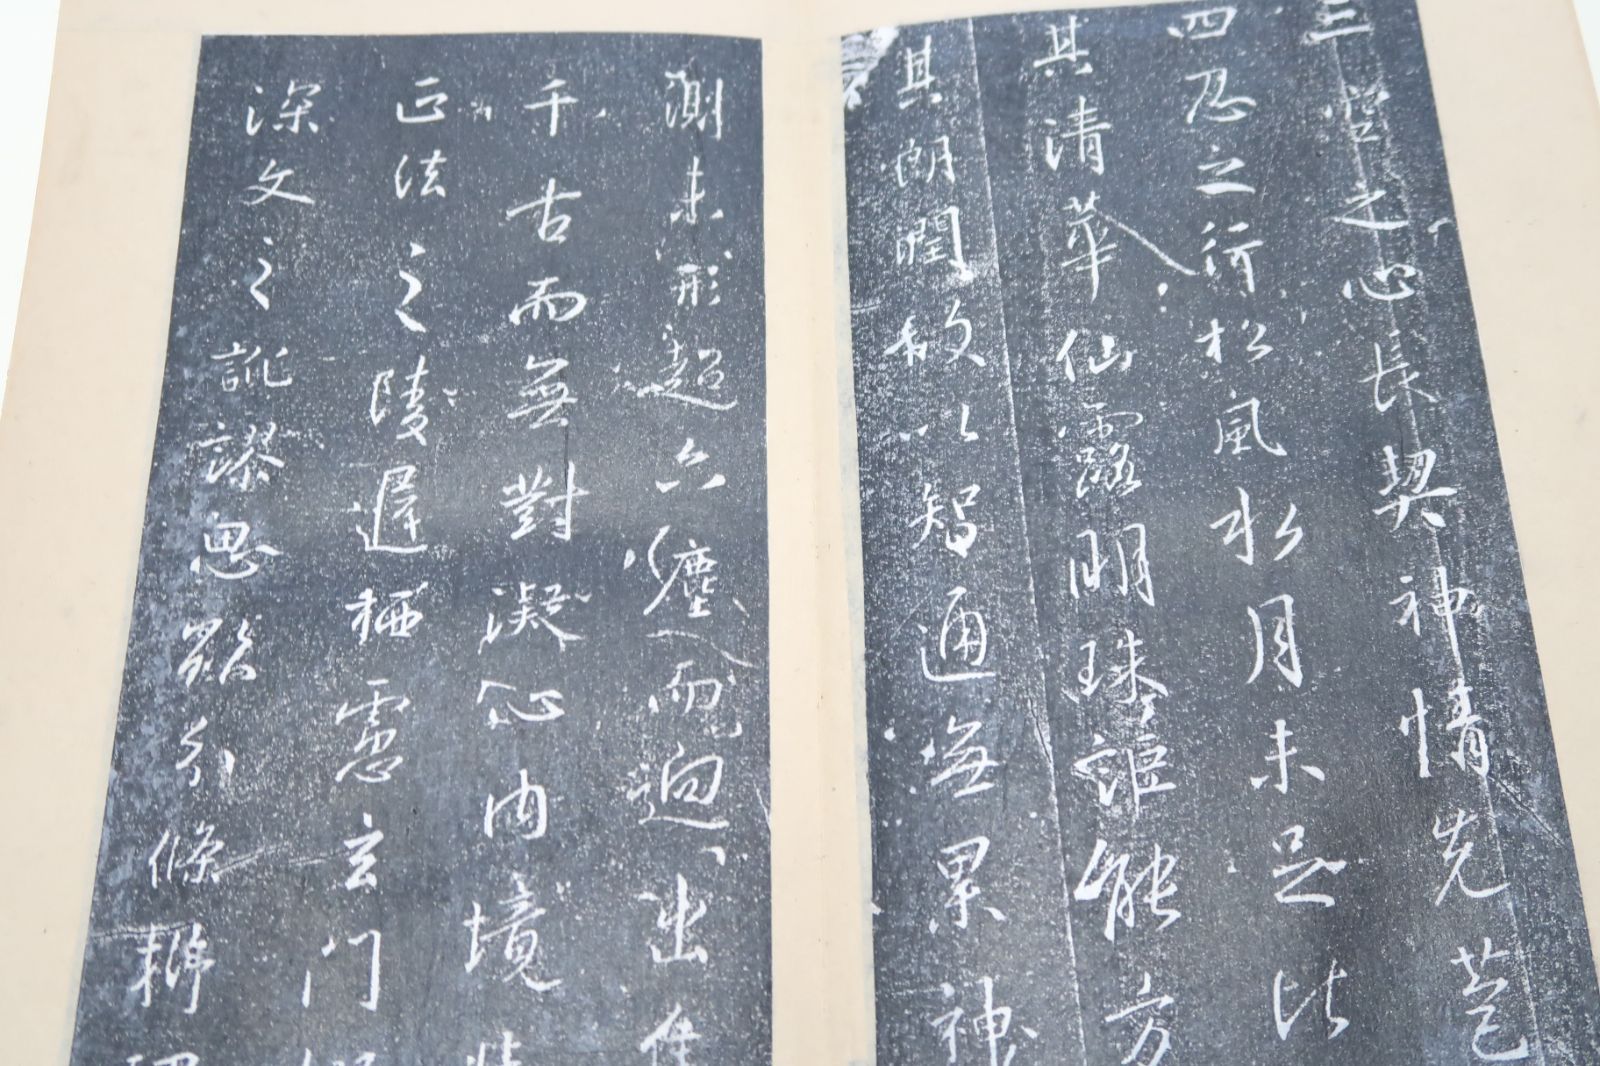 三空之心長契神情先苞
四忍之行松風水月未足比
其清華仙露明珠詎能方
其朗潤故以智通無累神
測未形超六塵而迥出隻
千古而無對凝心內境悲
正法之陵遲栖慮玄門慨
深文之訛謬思欲分條析